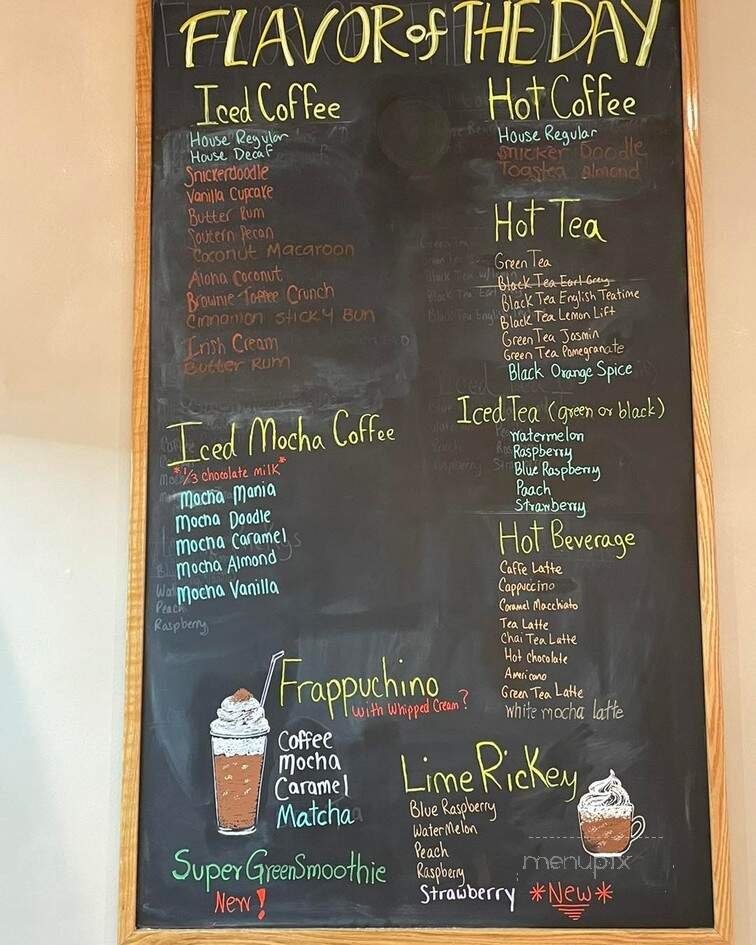 FLAVOR of THE DAY
Iced Coffee
House Regular
House Decaf
Snickerdoodle
Vanilla Cupcake
Butter Rum
Soutern Pecan
Coconut Macaroon
Aloha Coconut
Brownie Toffee Crunch
Cinnamon Sticky Bun
Irish Cream
Butter Rum
Iced Mocha Coffee
*1/3 chocolate milk*
Mocha Mania
Mocha Doodle
Mocha Caramel
Mocha Almond
Mocha Vanilla
Peach
Raspberry
Hot Coffee
House Regular
Snicker Doodle
Toasted Almond
Hot Tea
Green Tea
Black Tea Earl Grey
Black Tea English Teatime
Black Tea Lemon Lift
Green Tea Jasmin
Green Tea Pomegranate
Black Orange Spice
Iced Tea (green or black)
Watermelon
Raspberry
Blue Raspberry
Paach
Strawberry
Hot Beverage
Caffe Latte
Cappuccino
Caramel Macchiato
Tea Latte
Chai Tea Latte
Hot chocolate
Americano
Green Tea Latte
White mocha latte
Frappuchino
with Whipped Cream?
Coffee
Mocha
Caramel
Matcha
Super Green Smoothie
New!
Lime Rickey
Blue Raspberry
Watermelon
Peach
Raspberry
Strawberry *New*
menupix